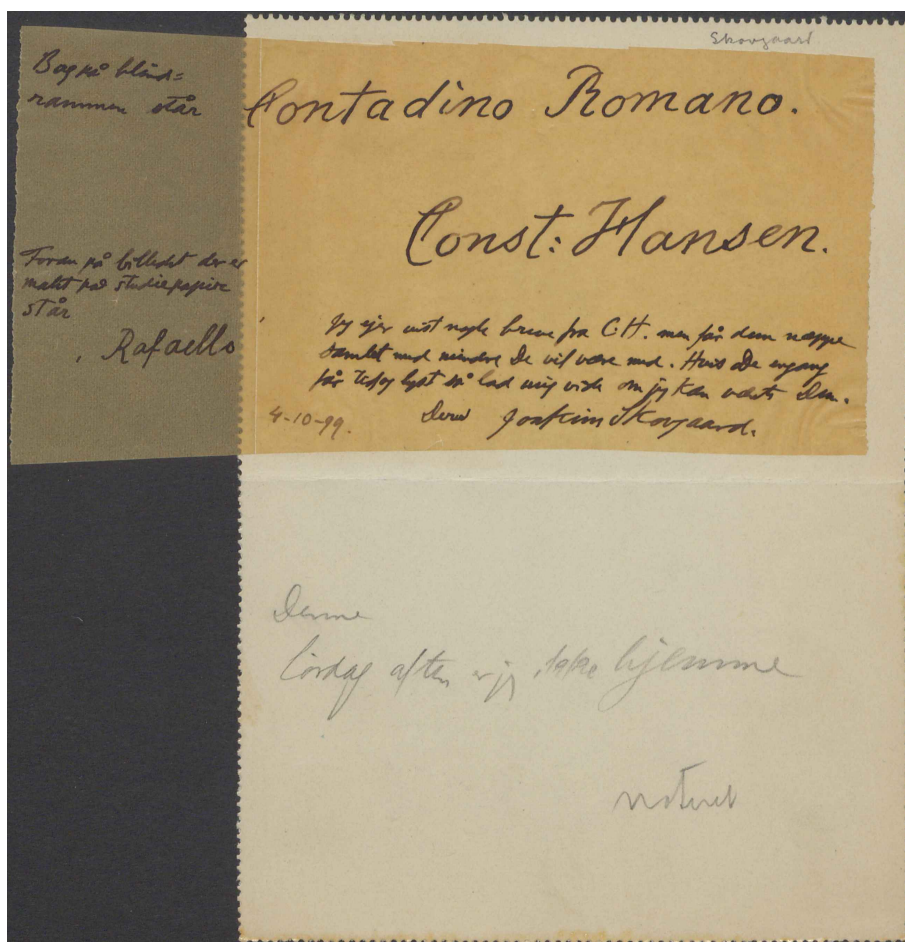 Skovgaard
Bag på blind=
rammen står
Contadino Romano.
Const: Hansen.
Foran på billedet der er
malt på studiepapir
står
Rafaello
Jeg ejer vist nogle breve fra C.H. men får dem næppe
samlet med mindre De vil være med. Hvis De engang
får lyst så lad mig vide om jeg kan vente Dem.
4-10-99.
Deres Joakim Skovgaard.
Denne
Lördag aften er jeg ikke hjemme
noteret